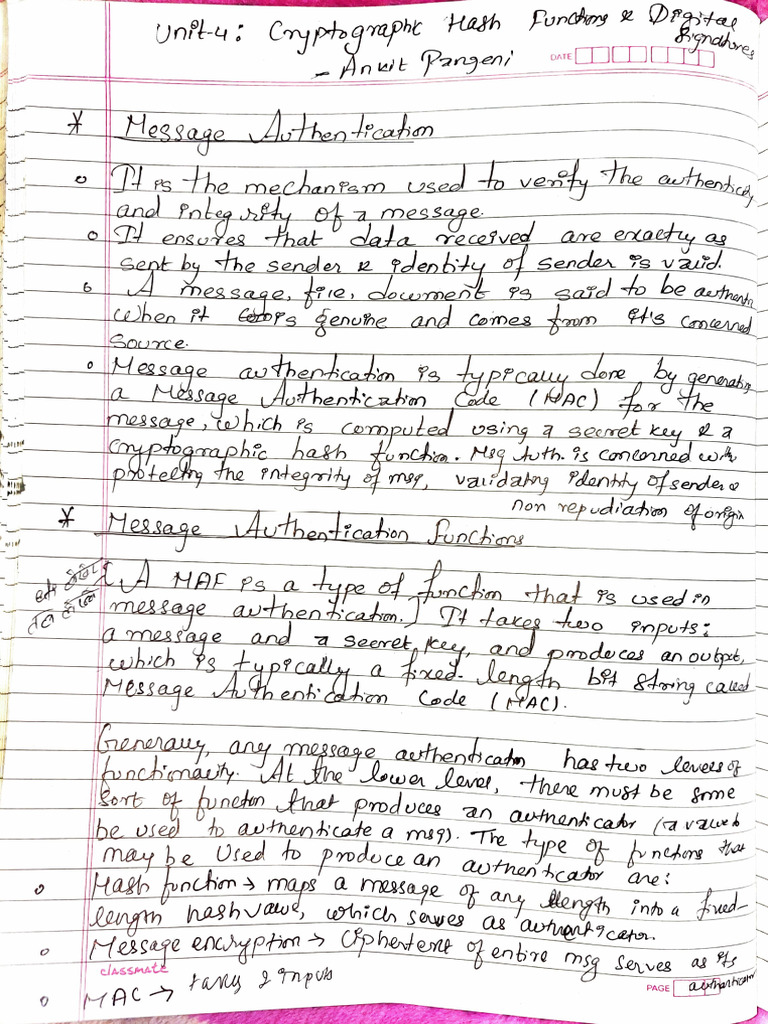 Unit-4: Cryptographic Hash Functions & Digital Signatures
- Ankit Pangeni
DATE
* Message Authentication
o It is the mechanism used to verify the authenticity
and integrity of a message.
o It ensures that data received are exactly as
sent by the sender & identity of sender is valid.
o A message, file, document is said to be authentic
when it is genuine and comes from it's concerned
source.
o Message authentication is typically done by generating
a Message Authentication Code (MAC) for the
message, which is computed using a secret key & a
cryptographic hash function. Msg Auth. is concerned with
protecting the integrity of msg, validating identity of sender &
non repudiation of origin
* Message Authentication Functions
[A MAF is a type of function that is used in
message authentication.] It takes two inputs:
a message and a secret key, and produces an output,
which is typically a fixed-length bit string called
Message Authentication Code (MAC).
Generally, any message authentication has two levels of
functionality. At the lower level, there must be some
sort of function that produces an authenticator (a value to
be used to authenticate a msg). The type of functions that
may be used to produce an authenticator are:
o Hash function → maps a message of any length into a fixed-
length hash value, which serves as authenticator.
o Message encryption → Ciphertext of entire msg serves as its
authenticator
classmate
o MAC → takes 2 inputs
PAGE